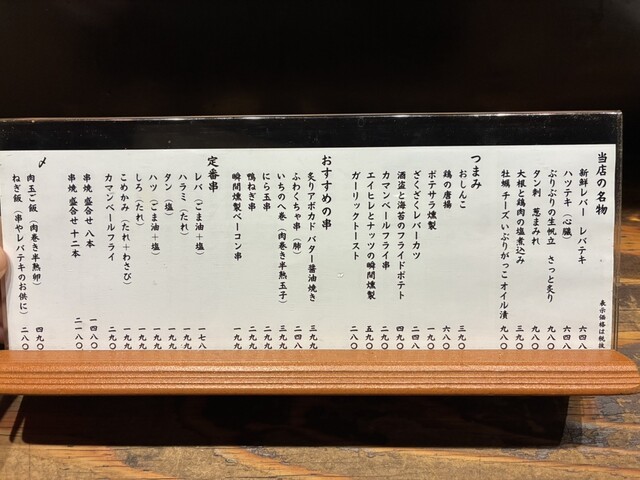 当店の名物
表示価格は税抜
新鮮レバー レバテキ 六四八
ハツテキ（心臓） 六四八
ぷりぷりの生帆立 さっと炙り 九八〇
タン刺 葱まみれ 九八〇
大根と鶏肉の塩煮込み 五八〇
牡蠣チーズいぶりがっこオイル漬 九八〇
つまみ
おしんこ 三九〇
鶏の唐揚 六八〇
ポテサラ燻製 一九〇
ざくざくレバーカツ 二四八
酒盗と海苔のフライドポテト 四九〇
カマンベールフライ串 二九〇
エイヒレとナッツの瞬間燻製 五九〇
ガーリックトースト 二八〇
おすすめの串
炙りアボカド バター醤油焼き 三九九
ふわくちゃ串（肺） 二四八
いちのへ巻（肉巻き半熟玉子） 三九九
にら玉串 二九九
鴨ねぎ串 二九九
瞬間燻製ベーコン串 一九九
定番串
レバ（ごま油＋塩） 一七八
ハラミ（たれ） 一九九
タン（塩） 一九九
ハツ（ごま油＋塩） 一九九
しろ（たれ） 一九九
こめかみ（たれ＋わさび） 一九九
カマンベールフライ 二九〇
串焼 盛合せ 八本 一四八〇
串焼 盛合せ 十二本 二一八〇
〆
肉玉ご飯（肉巻き半熟卵） 四九〇
ねぎ飯（串やレバテキのお供に） 二八〇